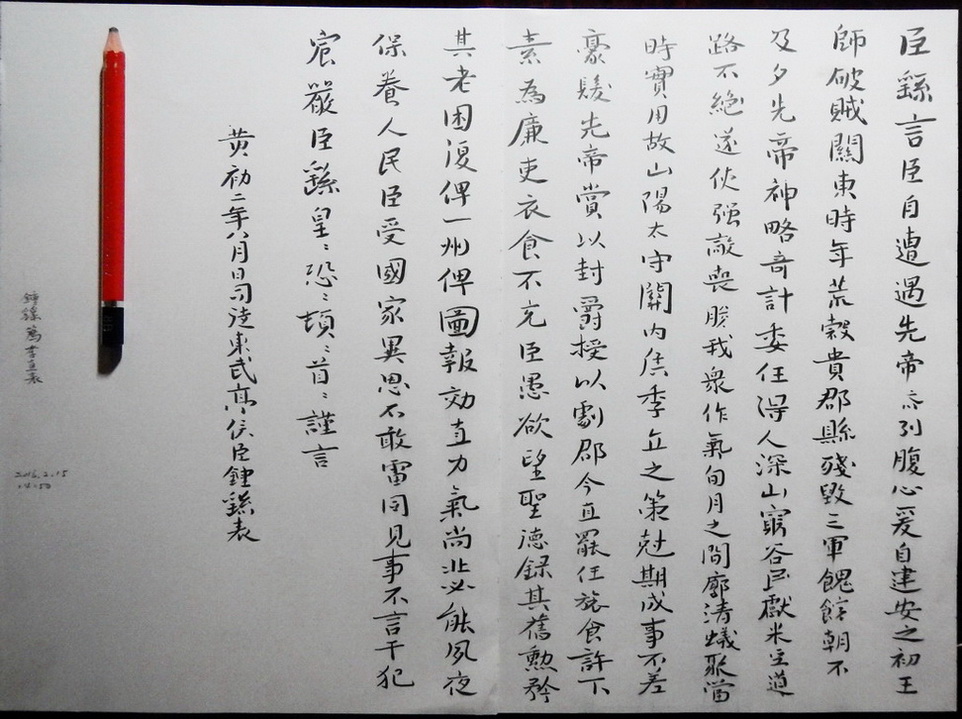 臣繇言臣自遭遇先帝忝列腹心爰自建安之初王
師破賊關東時年荒穀貴郡縣殘毀三軍餽饟朝不
及夕先帝神略奇計委任得人深山窮谷民獻米豆道
路不絕遂使强敵喪膽我衆作氣旬月之間廓清蟻聚當
時實用故山陽太守關內侯季直之策尅期成事不差
豪髮先帝賞以封爵授以劇郡今直罷任旅食許下
素為廉吏衣食不充臣愚欲望聖德錄其舊勳矜
其老困復俾一州俾圖報効直力氣尚壯必能夙夜
保養人民臣受國家異恩不敢雷同見事不言干犯
宸嚴臣繇皇〻恐〻頓〻首〻謹言
黃初二年八月日司徒東武亭侯臣鍾繇表
鍾繇 薦季直表
2016.2.15
14:50